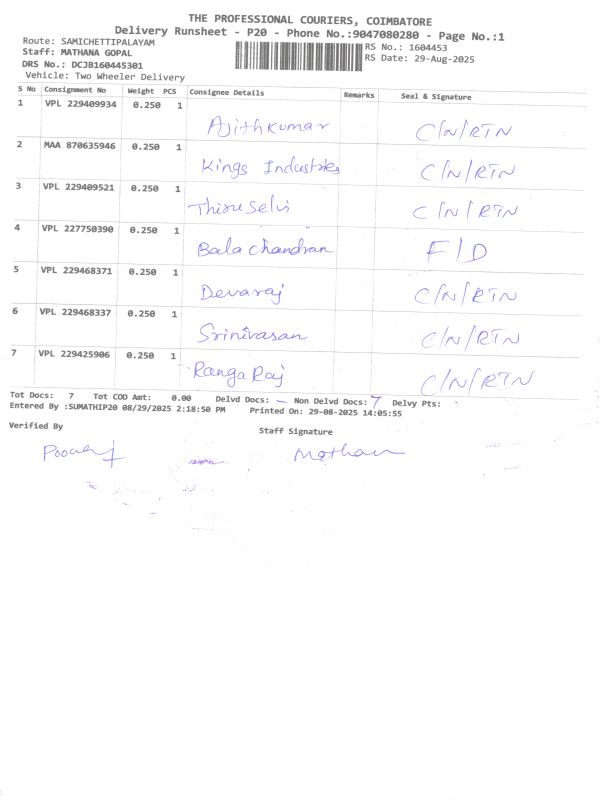 THE PROFESSIONAL COURIERS, COIMBATORE
Delivery Runsheet - P20 - Phone No.:9047080280 - Page No.:1
Route: SAMICHETTIPALAYAM
RS No.: 1604453
Staff: MATHANA GOPAL
RS Date: 29-Aug-2025
DRS No.: DCJB160445301
Vehicle: Two Wheeler Delivery
S No Consignment No Weight PCS Consignee Details Remarks Seal & Signature
1 VPL 229409934 0.250 1 Ajithkumar C/N/RTN
2 MAA 870635946 0.250 1 Kings Industries C/N/RTN
3 VPL 229409521 0.250 1 Thiruselvi C/N/RTN
4 VPL 227750390 0.250 1 Bala chandran F/D
5 VPL 229468371 0.250 1 Devaraj C/N/RTN
6 VPL 229468337 0.250 1 Srinivasan C/N/RTN
7 VPL 229425906 0.250 1 Ranga Raj C/N/RTN
Tot Docs: 7 Tot COD Amt: 0.00 Delvd Docs: – Non Delvd Docs: 7 Delvy Pts:
Entered By :SUMATHIP20 08/29/2025 2:18:50 PM Printed On: 29-08-2025 14:05:55
Verified By
Staff Signature
Mathan